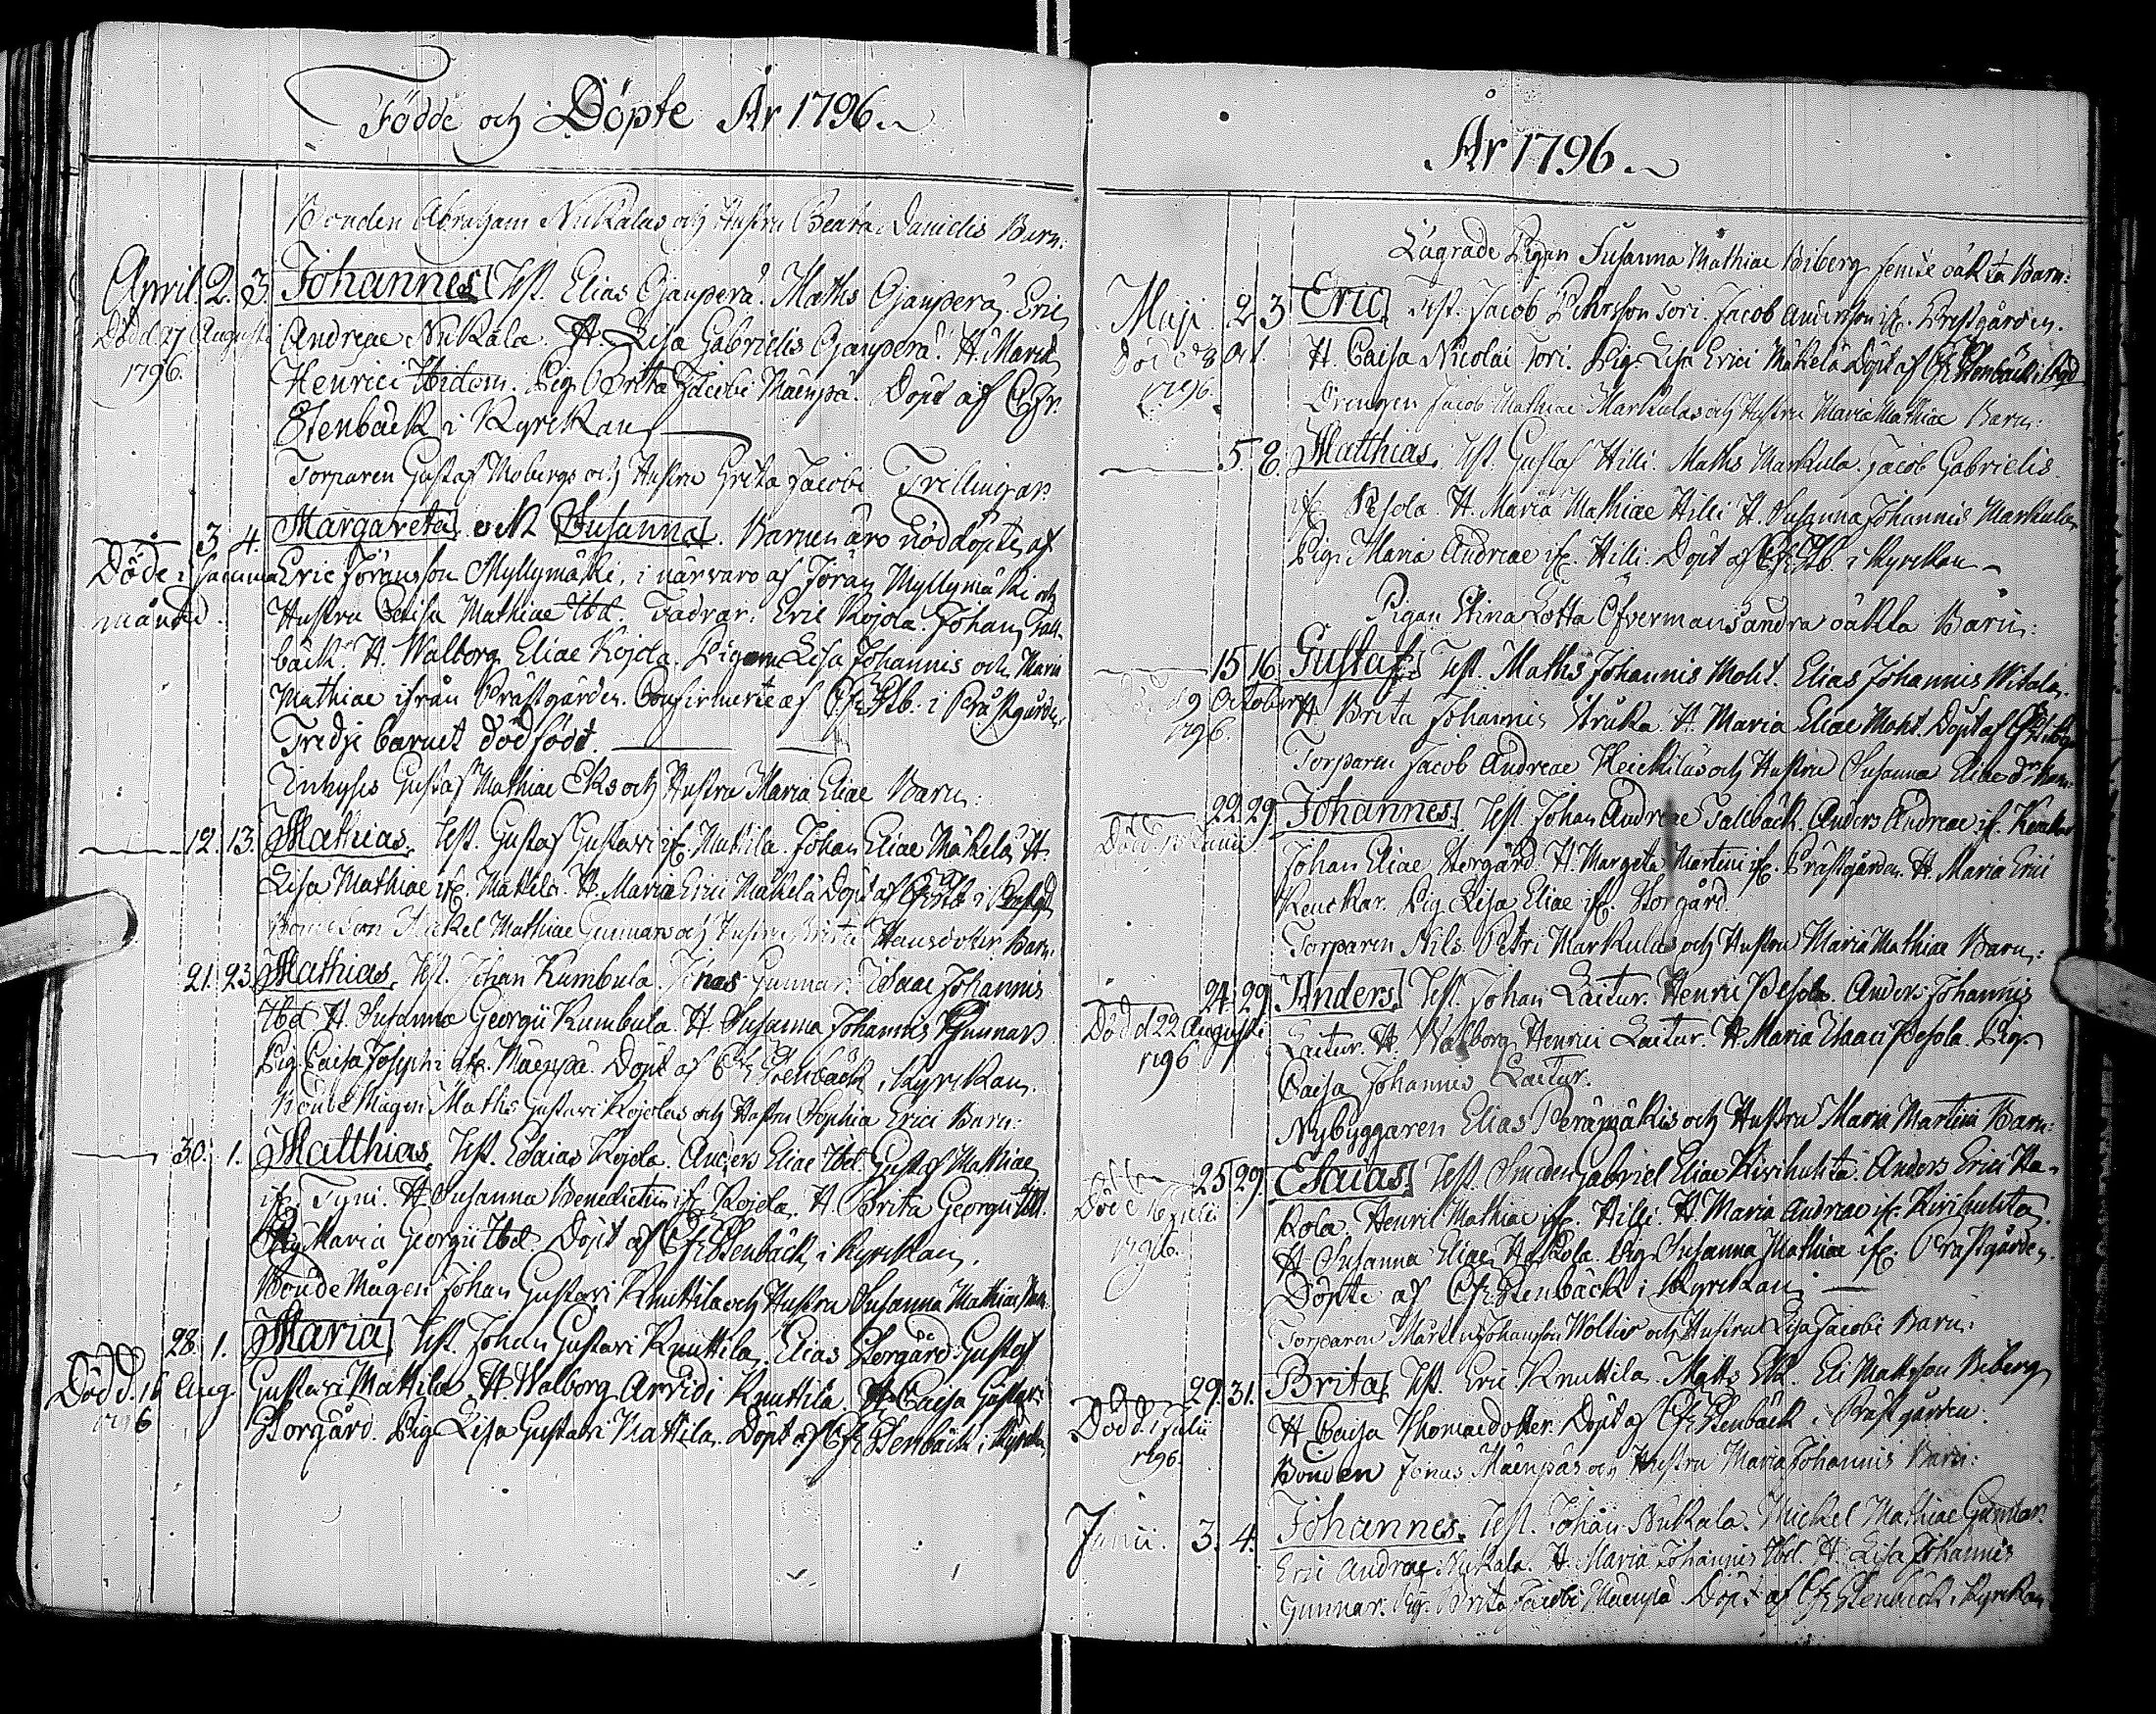 Födde och Döpte År 1796.
Bonden Abraham Nukalas och Hustru Beata Danielis Barn:
April. 2. 3. Johannes. Test. Elias Ojanperä. Maths Ojanperä, Eric
Död d. 27 Augusti Andreae Nukala. H. Lisa Gabrielis Ojanperä. H. Maria
1796. Henrici Widom. Pig. Brita Jacobi Mäenpä. Döpt af Cfr.
Stenbäck i Kyrckan
Torparen Gustaf Mobergs och Hustru Greta Jacobi Trillingar
3 4. Margareta och Susanna. Barnen äro nöddöpte af
Döde i samma Eric Jöransson Myllymäki, i närvaro af Jöran Myllymäki och
månad. Hustru Caisa Mathiae Ibd. Fadrar: Eric Kojola. Johan Tall-
bäck. H. Walborg Eliae Kojola. Pigorne Lisa Johannis och Maria
Mathiae ifrån Prästgården. Confirmerte af Cfr. Stb. i Prästgården
Tredje barnet dödfödt.
Inhyses Gustaf Mathiae Eks och Hustru Maria Eliae Barn:
12. 13. Mathias. Test. Gustaf Gustavi if. Mattila. Johan Eliae Mäkelä. H.
Lisa Mathiae if. Mattila. H. Maria Erici Mäkelä Döpt af Cfr Stb i Prestgd
Mickel Mathiae Gunnars och Hustru Brita Hansdotter Barn:
21. 23. Mathias. Test. Johan Kumbula. Jonas Gunnar. Isaac Johannis
Ibd H. Susanna Georgii Kumbula. H. Susanna Johannis Gunnars
Pig. Caisa Josephi if. Mäenpä. Döpt af Cfr Stenbäck i Kyrckan.
Bonde Mågen Maths Gustavi Kojolas och Hustru Sophia Erici Barn:
30. 1. Matthias. Test. Esaias Kojola. Anders Eliae Ibd. Gustaf Mathiae
if. Tyni. H. Susanna Benedictus if. Kojola. H. Brita Georgii Ibd.
Pig Maria Georgii Ibd. Döpt af Cfr Stenbäck i Kyrckan.
Bonde Mågen Johan Gustavi Knuttila och Hustru Susanna Mathiae Barn
28. 1. Maria. Test. Johan Gustavi Knuttila. Elias Storgård. Gustaf
Död d. 16 Aug Gustavi Mattila. H. Walborg Arvidi Knuttila. H. Caisa Gustavi
1796 Storgård. Pig Lisa Gustavi Mattila. Döpt af Cfr Stenbäck i Kyrckan
År 1796.
Lägrade Pigan Susanna Mathiae Biberg femte oäkta Barn:
Maji. 2 3 Eric. Test. Jacob Pehrsson Tori. Jacob Andersson if. Prestgården.
Död d 8 Oct. H. Caisa Nicolai Tori. Pig. Lisa Erici Mäkelä Döpt af Cfr Stenbäck i
1796. Drengen Jacob Mathiae Markulas och Hustru Maria Mathiae Barn:
5. 8. Matthias. Test. Gustaf Hilli. Maths Markula. Jacob Gabrielis
if. Pesola. H. Maria Mathiae Hilli H. Susanna Johannis Markula
Pig. Maria Andreae if. Hilli. Döpt af Cfr Stb. i Kyrckan
Pigan Stina Lotta Öfvermans andra oäkta Barn:
15 16. Gustaf. Test. Maths Johannis Moht. Elias Johannis Witala.
Död d 9 October H. Brita Johannis H. Maria Eliae Moht. Döpt af Cfr
1796. Torparen Jacob Andreae Heickiläs och Hustru Susanna Eliae Barn:
22. 29. Johannes. Test. Johan Andreae Tallbäck. Anders Andreae if.
Död Junii Johan Eliae Storgård. H. Margeta Martini if. Prästgården. H. Maria Erici
Kenckar. Pig. Lisa Eliae if. Storgård.
Torparen Nils Petri Markulas och Hustru Maria Mathiae Barn:
24. 29. Anders. Test. Johan Laitur. Henric Pesola. Anders Johannis
Död d 22 Augusti Laitur. H. Walborg Henrici Laitur. H. Maria Isaaci Pesola. Pig.
1796 Caisa Johannis Laitur.
Nybyggaren Elias Perämäkis och Hustru Maria Martini Barn:
25. 29. Esaias. Test. Smeden Gabriel Eliae Kivihuhta. Anders Erici Ha-
Död d. 16 Julii kola. Henric Mathiae if. Hilli. H. Maria Andreae if. Kivihuhta.
1796. H. Susanna Eliae Hakola. Pig. Susanna Mathiae if. Prästgården.
Döpte af Cfr Stenbäck i Kyrckan
Torparen Mårten Johansson Wolter och Hustru Lisa Jacobi Barn:
29. 31. Brita. Test. Eric Knuttila. Matts Ek. Eli Mattsson Biberg
Död d. 1 Julii H Caisa Thomaedotter. Döpt af Cfr Stenbäck i Prästgården.
1796. Bonden Jonas Mäenpäs och Hustru Maria Johannis Barn:
Junii. 3. 4. Johannes. Test. Johan Nukala. Mickel Mathiae Gunnar
Eric Andreae Nukala. H. Maria Johannis Ibd. H. Lisa Johannis
Gunnar. Pig. Brita Jacobi Mäenpä Döpt af Cfr Stenbäck i Kyrckan